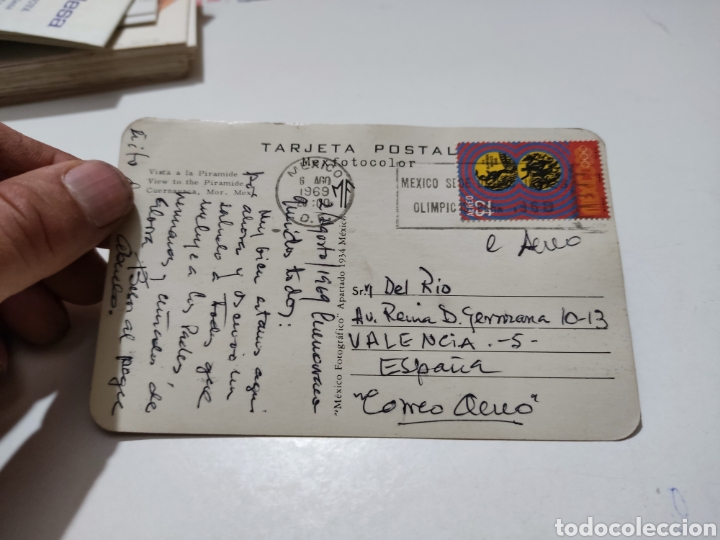 TARJETA POSTAL
Mexfotocolor
Vista a la Piramide
View to the Piramide
Cuernavaca, Mor. Mex.
MEXICO
6 AGO
1969
MEXICO SEDE
OLIMPIC 1968
AEREO
$2
"México Fotográfico" Apartado 1934 México
2 Agosto/1969 Cuernavaca
Queridos todos:
Muy bien estamos aqui
por ahora y os envio un
saludo a todos que
incluye a los Padres,
hermanos y cuñados de
Gloria. Besos al peque
Sr. Del Rio
Av. Reina D. Germana 10-13
VALENCIA.-5-
ESPAÑA
"Correo Aereo"
Aereo
todocoleccion